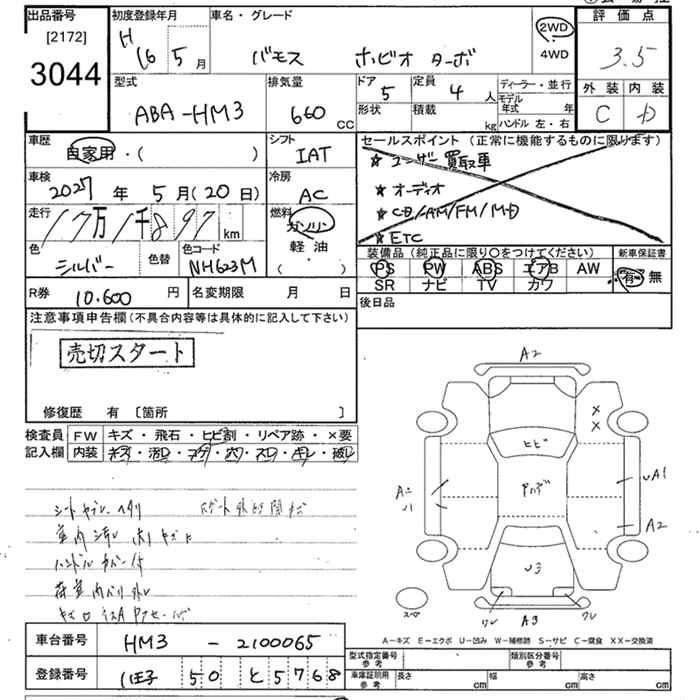 出品番号
[2172]
3044
初度登録年月
H 16 5 月
車名・グレード
バモス ホビオ ターボ
2WD
4WD
評価点
3.5
外装 内装
C D
型式
ABA-HM3
排気量
660 CC
ドア
5
定員
4 人
形状
積載
kg
ディーラー・並行
モデル年式 年
ハンドル 左・右
車歴
自家用・( )
シフト
IAT
セールスポイント (正常に機能するものに限ります)
★ ユーザー買取車
★ オーディオ
★ CD/AM/FM/MD
★ ETC
車検
2027 年 5 月 (20 日)
冷房
AC
走行
17万1千897 km
燃料
ガソリン
軽油
( )
色
シルバー
色替
色コード
NH623M
装備品 (純正品に限り○をつけてください)
PS PW ABS エアB AW
SR ナビ TV カワ
新車保証書
有・無
R券
10,600 円
名変期限 月 日
後日品
注意事項申告欄 (不具合内容等は具体的に記入して下さい)
売切スタート
修復歴 有 〔箇所 〕
検査員記入欄
FW キズ・飛石・ヒビ割・リペア跡・×要
内装 キズ・汚レ・コゲ・穴・スレ・キレ・破レ
A2
ヒビ
U3
A1
A2
A3
スペア
A－キズ E－エクボ U－凹み W－補修跡 S－サビ C－腐食 XX－交換済
車台番号
HM3 - 2100065
登録番号
八王子 50 と 5768
型式指定番号
参考
類別区分番号
参考
車庫証明用
参考
長さ cm
幅 cm
高さ cm